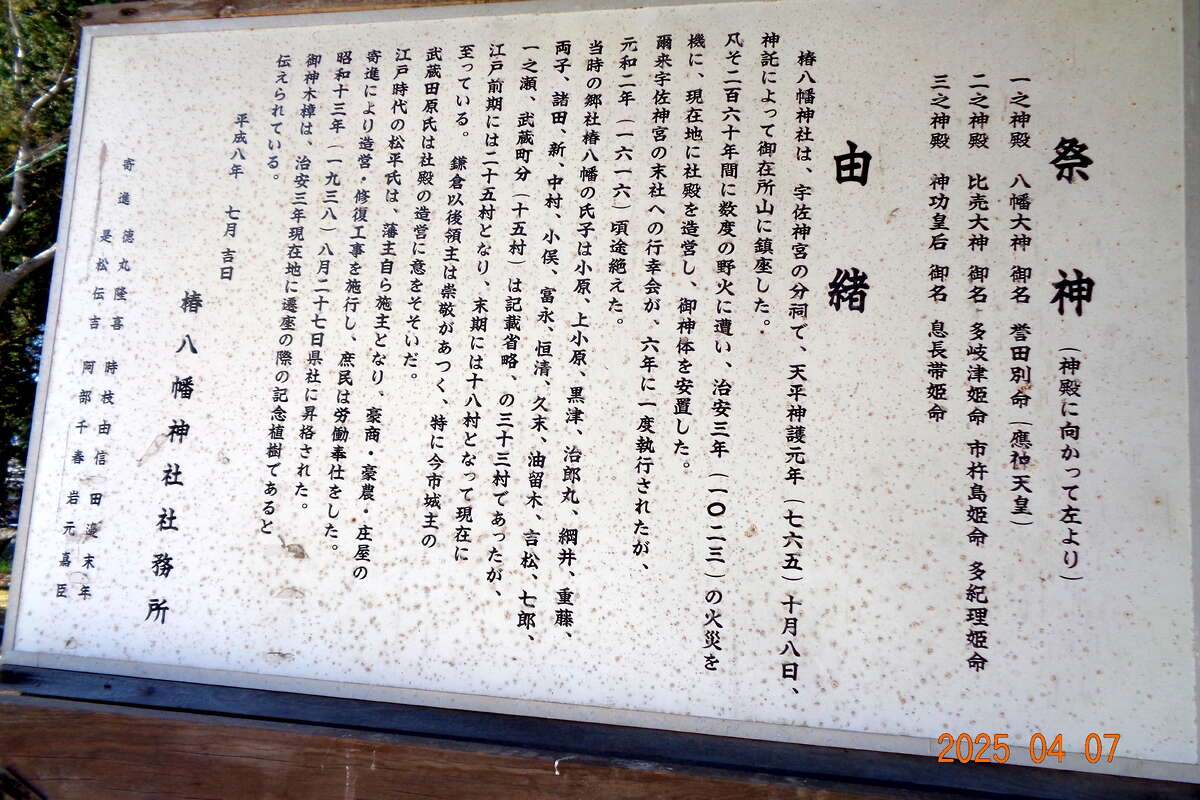 祭神（神殿に向かって左より）
一之神殿　八幡大神　御名　誉田別命（應神天皇）
二之神殿　比売大神　御名　多岐津姫命　市杵島姫命　多紀理姫命
三之神殿　神功皇后　御名　息長帯姫命
由緒
椿八幡神社は、宇佐神宮の分祠で、天平神護元年（七六五）十月八日、
神託によって御在所山に鎮座した。
凡そ二百六十年間に数度の野火に遭い、治安三年（一〇二三）の火災を
機に、現在地に社殿を造営し、御神体を安置した。
爾来宇佐神宮の末社への行幸会が、六年に一度執行されたが、
元和二年（一六一六）頃途絶えた。
当時の郷社椿八幡の氏子は小原、上小原、黒津、治郎丸、綱井、重藤、
両子、諸田、新、中村、小俣、富永、恒清、久末、油留木、吉松、七郎、
一之瀬、武蔵町分（十五村）は記載省略、の三十三村であったが、
江戸前期には二十五村となり、末期には十八村となって現在に
至っている。　鎌倉以後領主は崇敬があつく、特に今市城主の
武蔵田原氏は社殿の造営に意をそそいだ。
江戸時代の松平氏は、藩主自ら施主となり、豪商・豪農・庄屋の
寄進により造営・修復工事を施行し、庶民は労働奉仕をした。
昭和十三年（一九三八）八月二十七日県社に昇格された。
御神木樟は、治安三年現在地に遷座の際の記念植樹であると
伝えられている。
平成八年　七月　吉日
椿八幡神社社務所
寄進　徳丸隆喜　時枝由信　田邉末年
是松伝吉　阿部千春　岩元嘉臣
2025 04 07